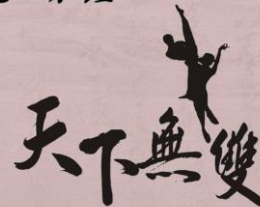 天下無雙